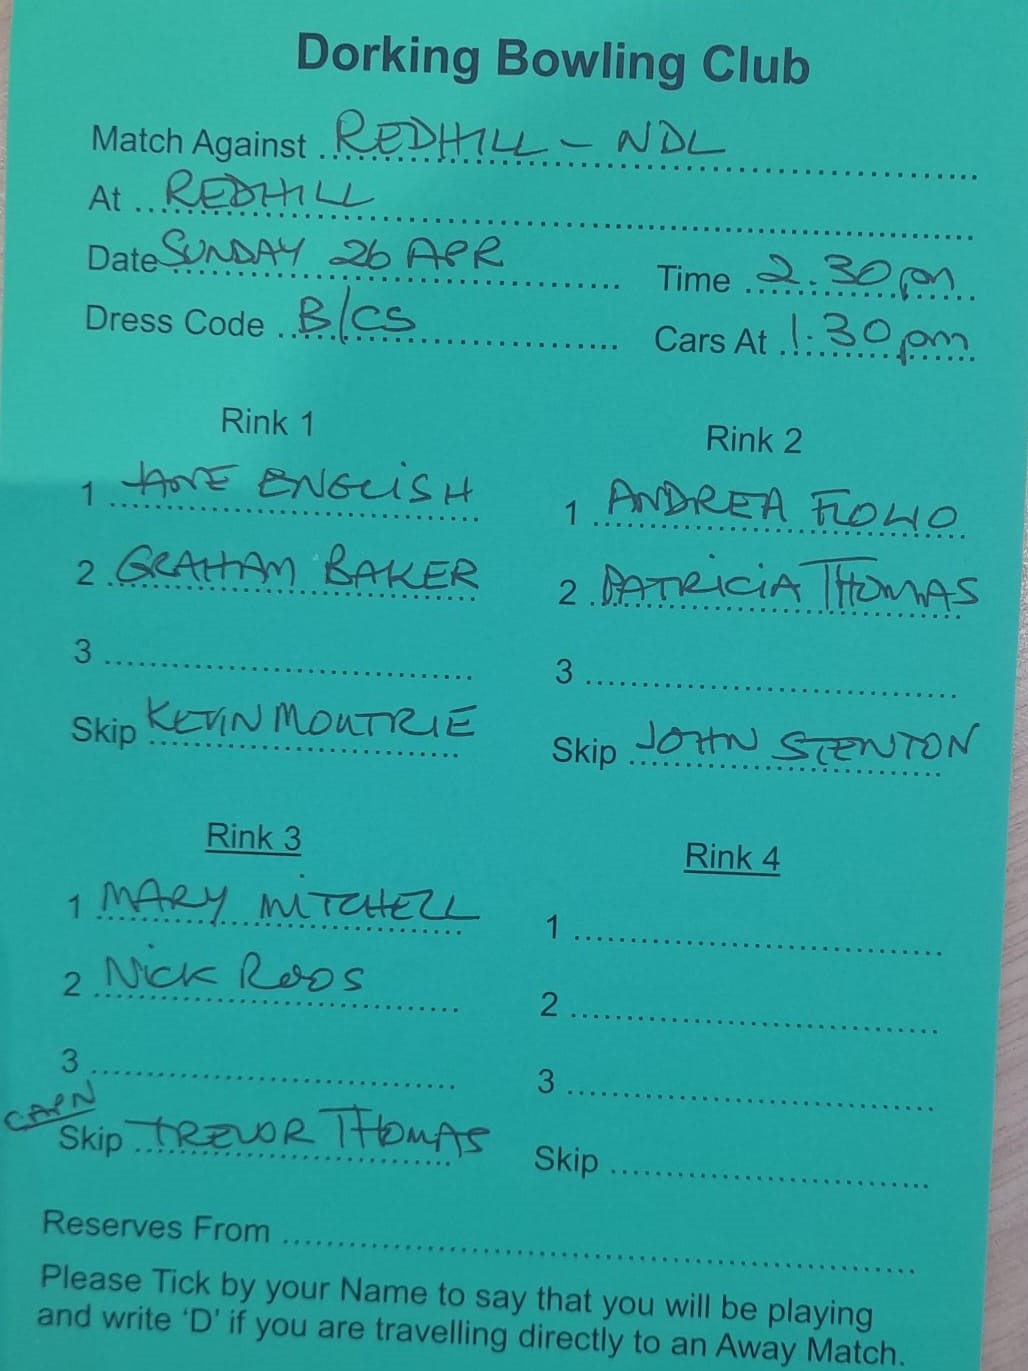 Dorking Bowling Club
Match Against REDHILL - NDL
At REDHILL
Date SUNDAY 26 APR
Time 2.30 pm
Dress Code B/CS
Cars At 1.30 pm
Rink 1
1 JANE ENGLISH
2 GRAHAM BAKER
3
Skip KEVIN MOUTRIE
Rink 2
1 ANDREA
2 PATRICIA THOMAS
3
Skip JOHN STENTON
Rink 3
1 MARY MITCHELL
2 NICK ROOS
3
CAPN
Skip TREVOR THOMAS
Rink 4
1
2
3
Skip
Reserves From
Please Tick by your Name to say that you will be playing
and write 'D' if you are travelling directly to an Away Match.